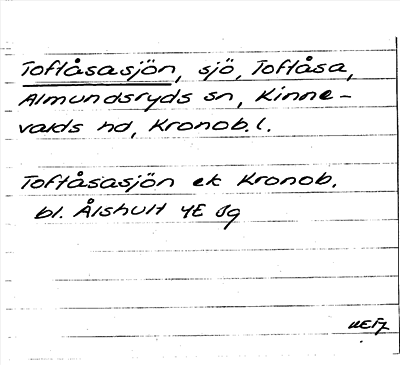 Toftåsasjön, sjö, Toftåsa,
Almundsryds sn, Kinne-
valds hd, Kronob. l.
Toftåsasjön ek Kronob.
bl. Ålshult 4E